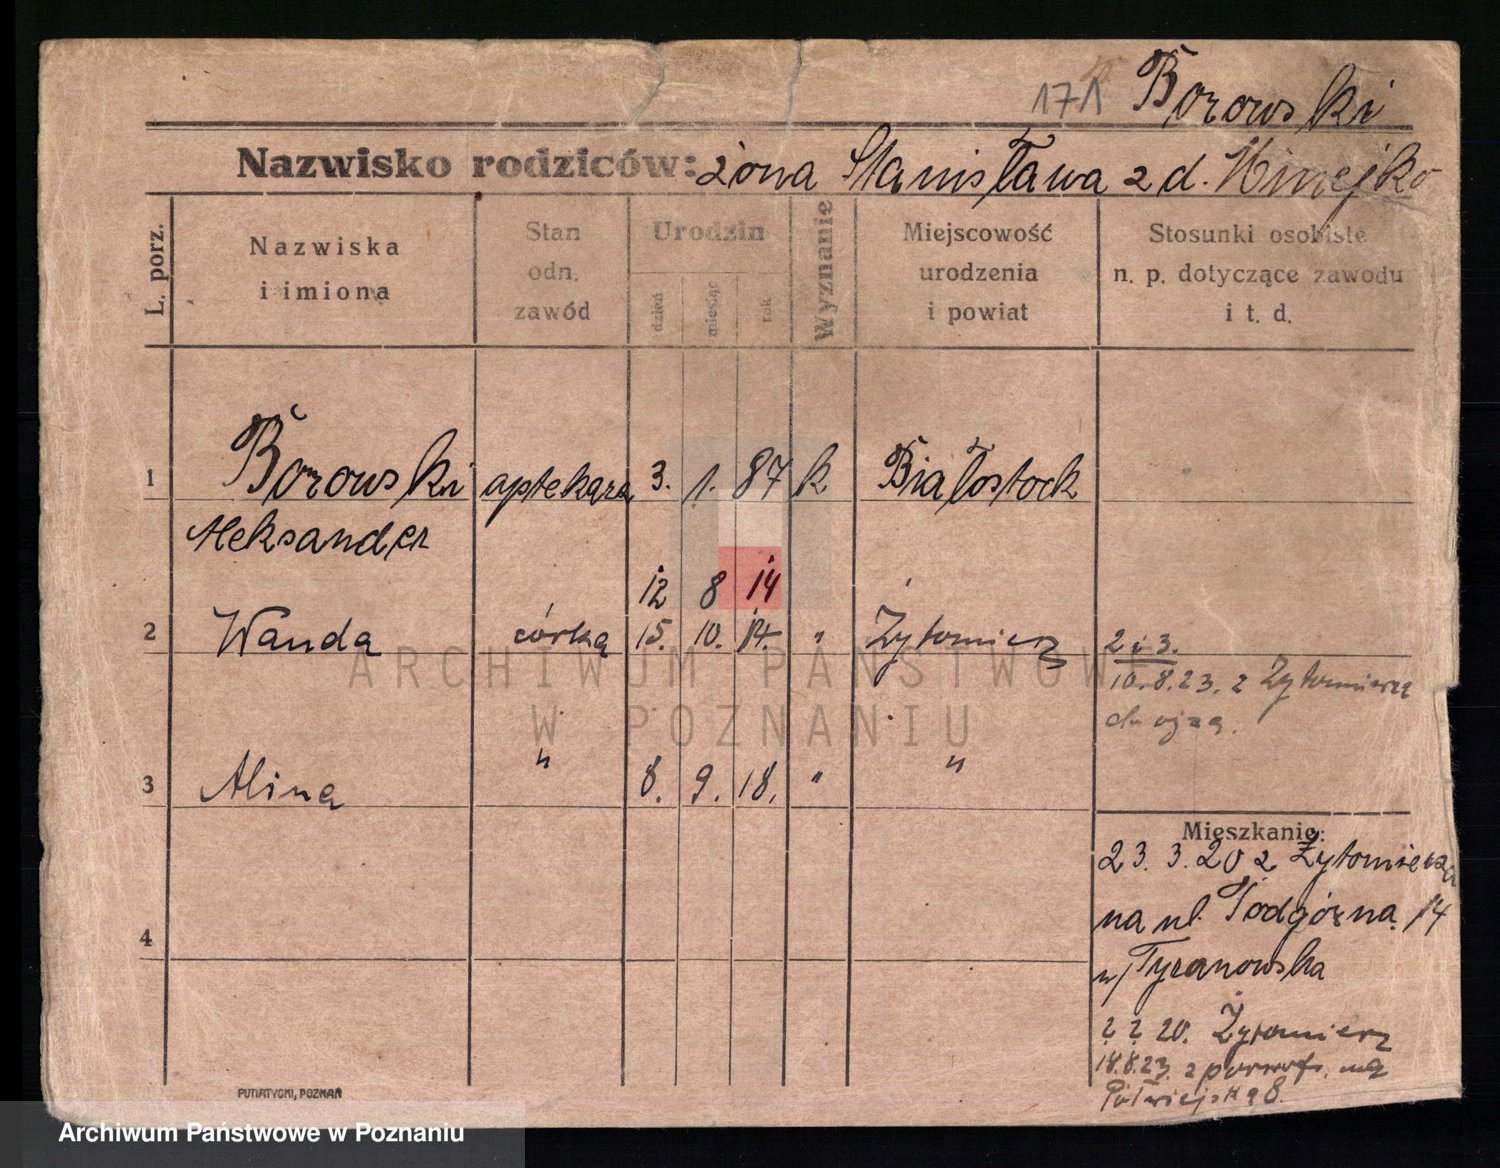 171 Borowski
Nazwisko rodziców: żona Stanisława z d.
L. porz.
Nazwiska
i imiona
Stan
odn.
zawód
Urodzin
dzień
miesiąc
rok
Wyznanie
Miejscowość
urodzenia
i powiat
Stosunki osobiste
n. p. dotyczące zawodu
i t. d.
1 Borowski aptekarz 3. 1. 87 k Białostock
Aleksander
12 8 14
2 Wanda córka 15. 10. 14. " Żytomierz 2 i 3.
10.8.23. z Żytomierza
do ojca.
3 Alina " 8. 9. 18. " "
Mieszkanie:
23. 3. 20 z Żytomierza
na ul. Podgórna 14
4
u/Tyranowska
? ? 20. Żytomierz
18.8.23. z
Półwiejska 8.
PUTIATYCKI, POZNAŃ
ARCHIWUM PAŃSTWOWE
W POZNANIU
Archiwum Państwowe w Poznaniu